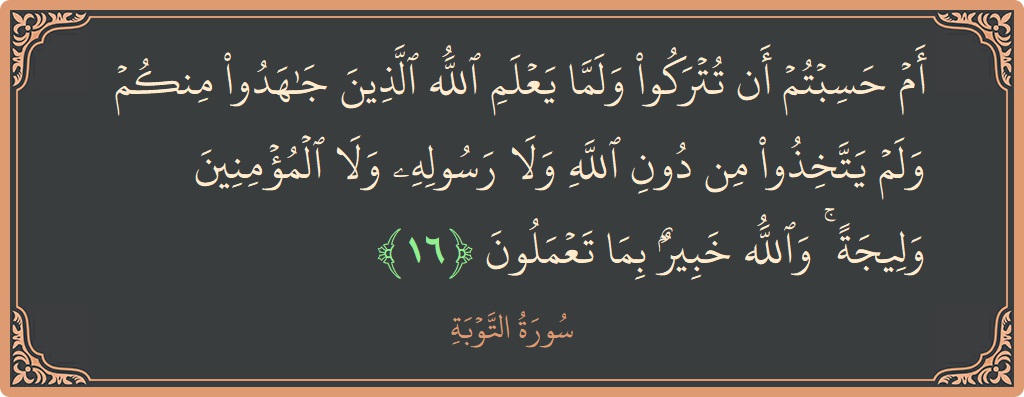 أَمۡ حَسِبۡتُمۡ أَن تُتۡرَكُواْ وَلَمَّا يَعۡلَمِ ٱللَّهُ ٱلَّذِينَ جَٰهَدُواْ مِنكُمۡ
وَلَمۡ يَتَّخِذُواْ مِن دُونِ ٱللَّهِ وَلَا رَسُولِهِۦ وَلَا ٱلۡمُؤۡمِنِينَ
وَلِيجَةٗۚ وَٱللَّهُ خَبِيرُۢ بِمَا تَعۡمَلُونَ ﴿١٦﴾
سُورَةُ التَّوۡبَةِ